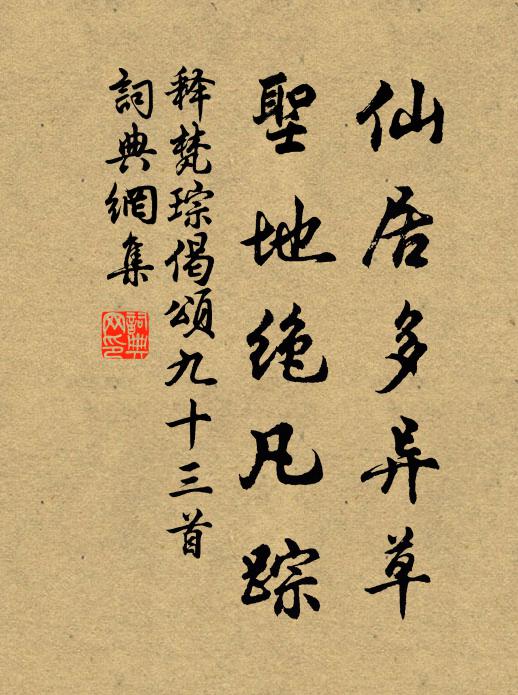 仙居多异草
聖地绝凡踪
释梵琮偈頌九十三首
詞典網集
詞典网印